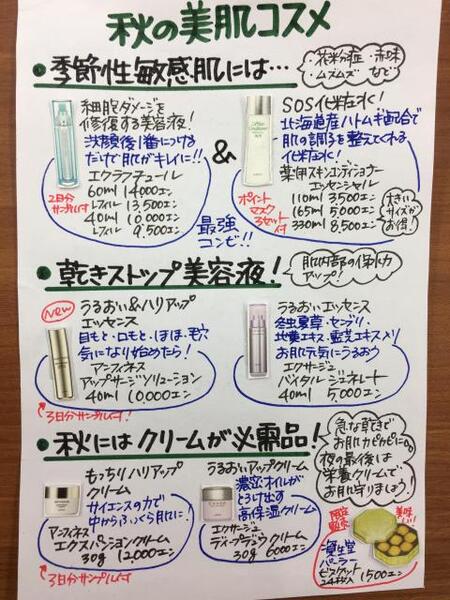 秋の美肌コスメ
季節性敏感肌には…
花粉症・赤味
・ムズムズ など
細胞ダメージを
修復する美容液!
洗顔後1番につける
だけで肌がキレイに!!
エクラフチュール
60ml 14000エン
レフィル 13,500エン
40ml 10,000エン
レフィル 9,500エン
2日分
サンプル付
&
最強
コンビ!!
SOS化粧水!
北海道産ハトムギ配合で
肌の調子を整えてくれる
化粧水!
薬用スキンコンディショナー
エッセンシャル
110ml 3,500エン
165ml 5,000エン
330ml 8,500エン
ポイント
マスク
3セット
付
大きい
サイズが
お得!
乾きストップ美容液!
肌内部の保水力
アップ!
New
うるおい&ハリアップ
エッセンス
目もと・口もと・ほほ・毛穴
気になり始めたら!
アンフィネス
アップサージソリューション
40ml 10,000エン
3日分サンプル付!
うるおいエッセンス
冬虫夏草・センブリ・
地黄エキス・霊芝エキス入り
お肌元気にうるおう
エクサージュ
バイタル ジェネレート
40ml 5,000エン
秋にはクリームが必需品!
急な乾きで
お肌カピカピに。
夜の最後は
栄養クリームで
お肌守りましょう!
もっちりハリアップ
クリーム
サイエンスの力で
中からふっくら肌に!
アンフィネス
エクスパンションクリーム
30g 12,000エン
3日分サンプル付
うるおいアップクリーム
濃密オイルが
とけ出す
高保湿クリーム
エクサージュ
ディープデュウ クリーム
30g 6000エン
限定
美味しい!
資生堂
パーラー
ビスケット
24枚入 1500エン